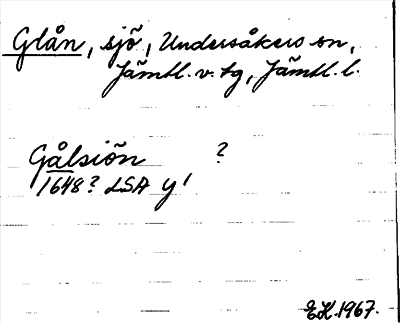 Glån, sjö, Undersåkers sn,
Jämtl. v. tg, Jämtl. l.
Gålsiön ?
1648? LSA y'
EK. 1967.